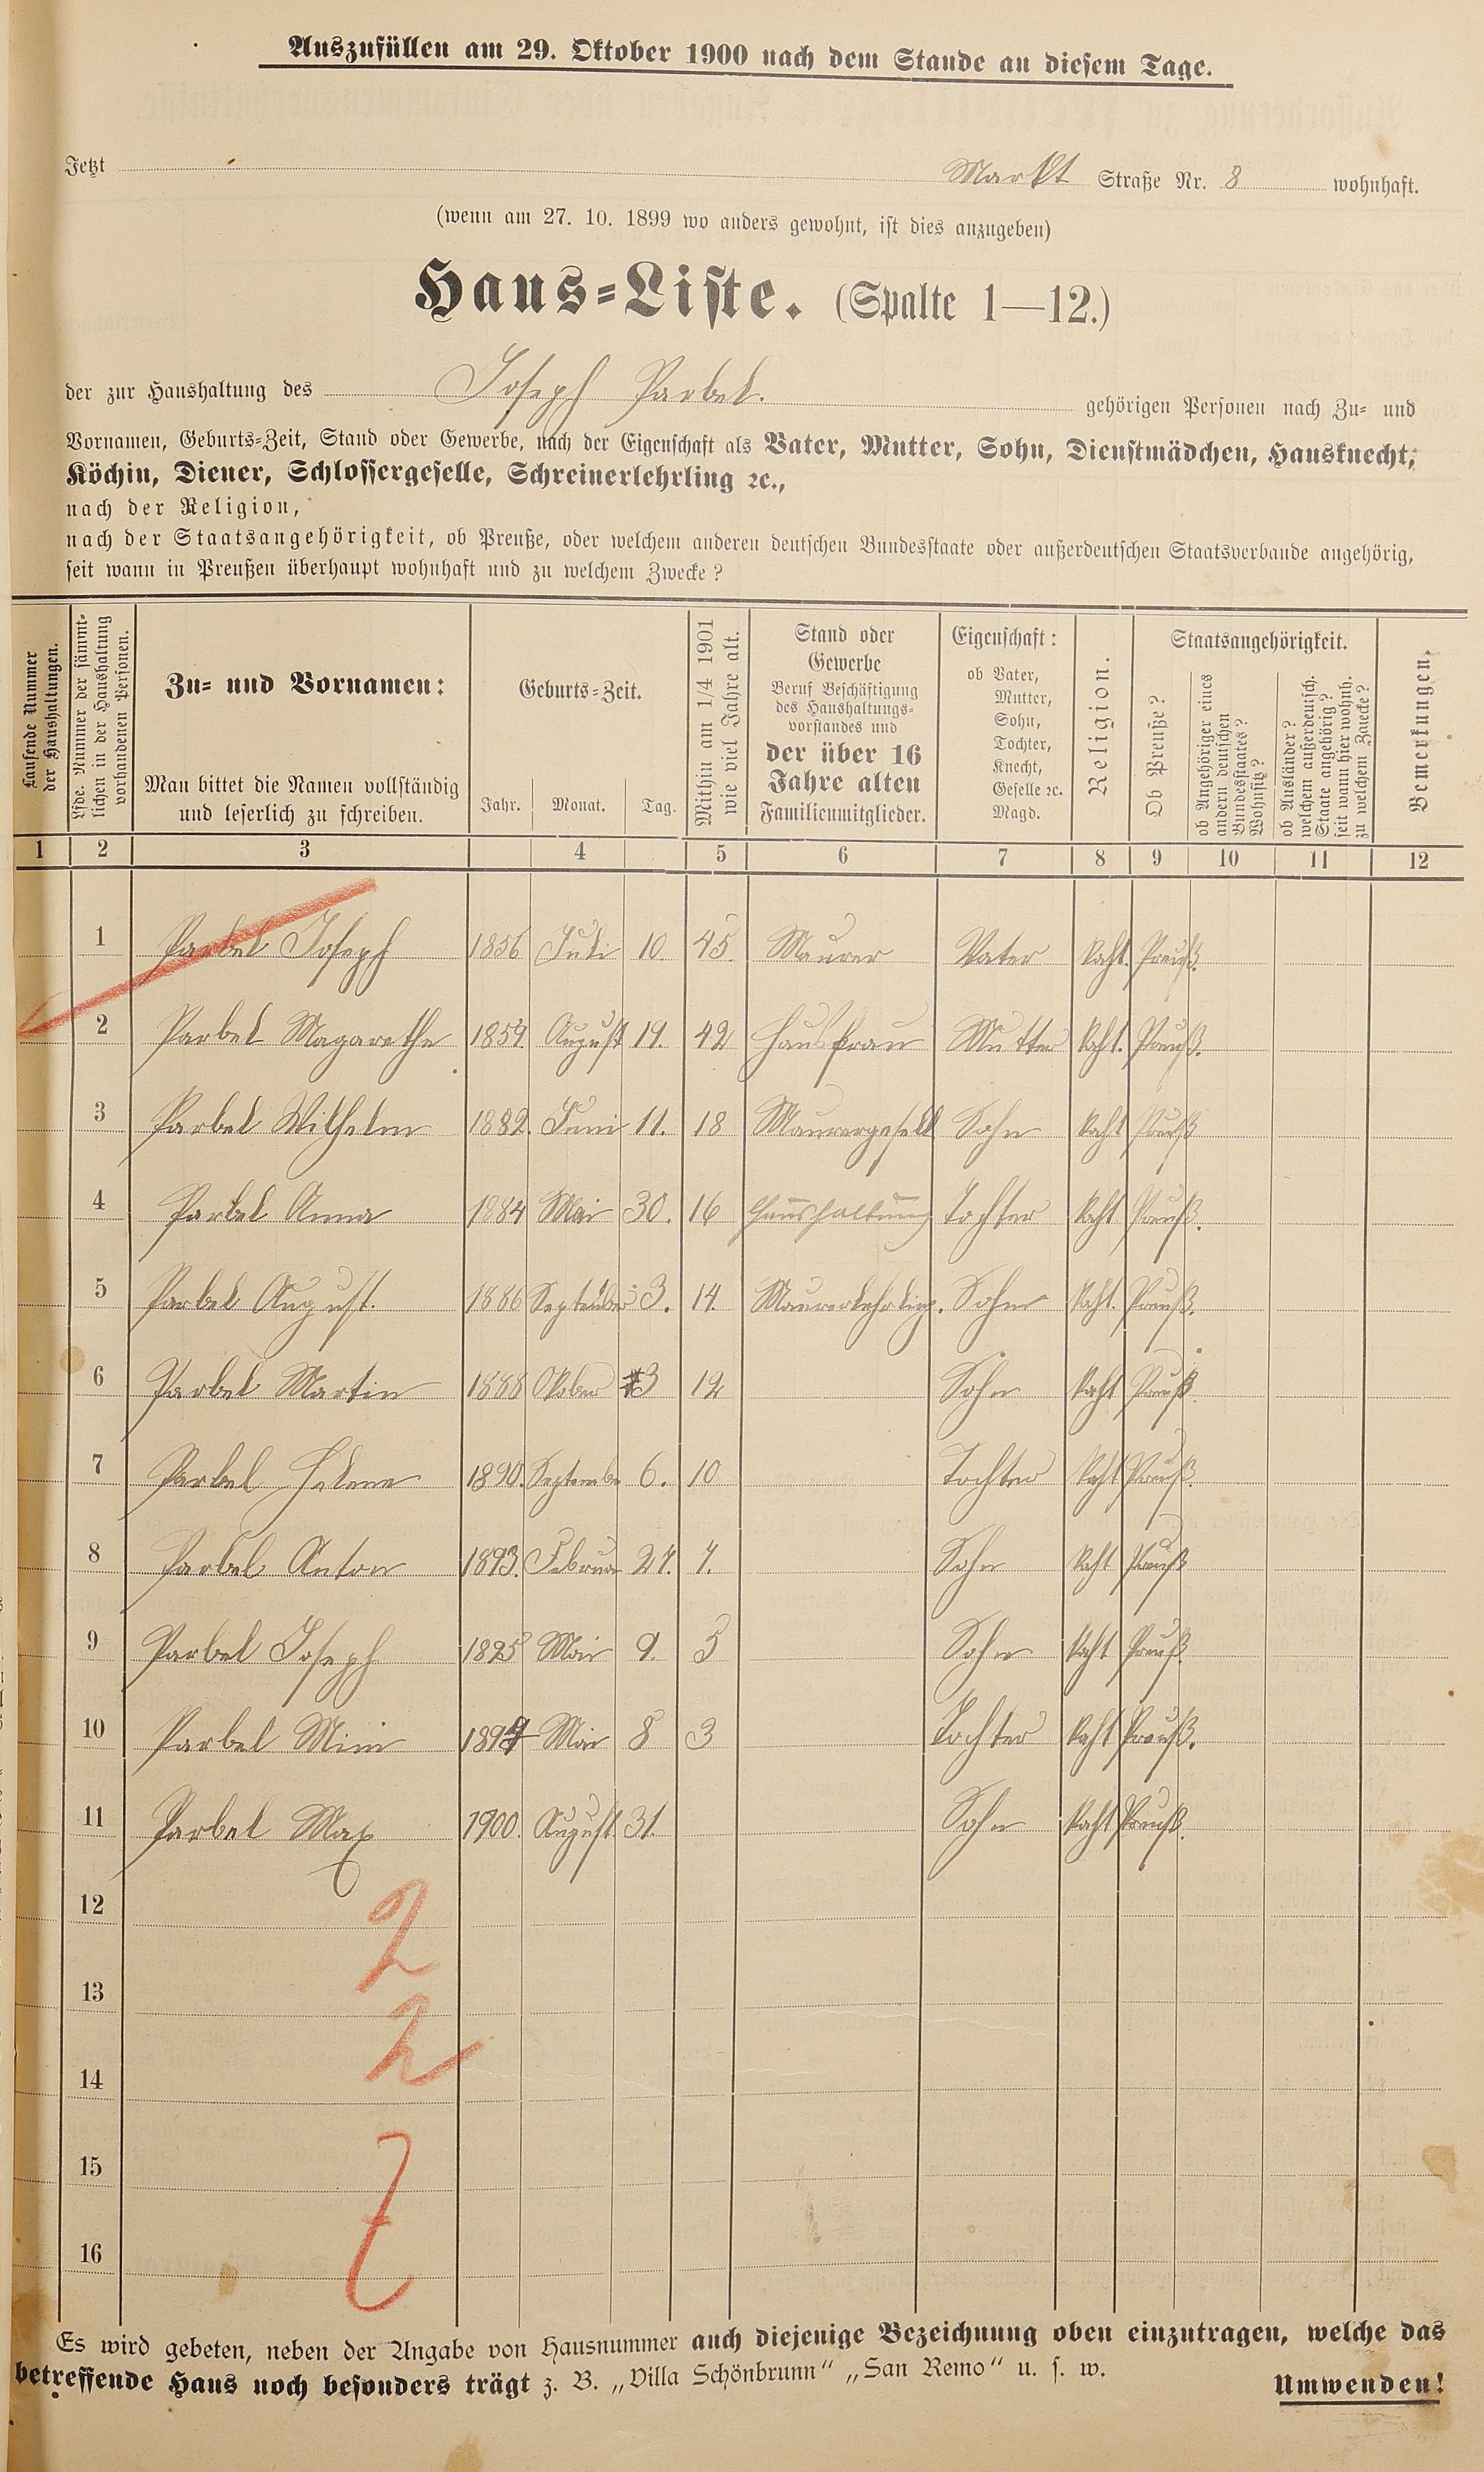 Auszufüllen am 29. Oktober 1900 nach dem Stande an diesem Tage.
Jetzt Markt Straße Nr. 8 wohnhaft.
(wenn am 27. 10. 1899 wo anders gewohnt, ist dies anzugeben)
Haus=Liste. (Spalte 1—12.)
der zur Haushaltung des Joseph Parbel. gehörigen Personen nach Zu= und
Vornamen, Geburts=Zeit, Stand oder Gewerbe, nach der Eigenschaft als Vater, Mutter, Sohn, Dienstmädchen, Hausknecht,
Köchin, Diener, Schlossergeselle, Schreinerlehrling ꝛc.,
nach der Religion,
nach der Staatsangehörigkeit, ob Preuße, oder welchem anderen deutschen Bundesstaate oder außerdeutschen Staatsverbande angehörig,
seit wann in Preußen überhaupt wohnhaft und zu welchem Zwecke?
Laufende Nummer
der Haushaltungen.
Lfde. Nummer der sämmt-
lichen in der Haushaltung
vorhandenen Personen.
Zu= und Vornamen:
Man bittet die Namen vollständig
und leserlich zu schreiben.
Geburts=Zeit.
Jahr. Monat. Tag.
Mithin am 1/4 1901
wie viel Jahre alt.
Stand oder
Gewerbe
Beruf Beschäftigung
des Haushaltungs=
vorstandes und
der über 16
Jahre alten
Familienmitglieder.
Eigenschaft:
ob Vater,
Mutter,
Sohn,
Tochter,
Knecht,
Geselle ꝛc.
Magd.
Religion.
Staatsangehörigkeit.
Ob Preuße?
ob Angehöriger eines
andern deutschen
Bundesstaates?
Wohnsitz?
ob Ausländer?
welchem außerdeutsch.
Staate angehörig?
seit wann hier wohnh.
zu welchem Zwecke?
Bemerkungen.
1 2 3 4 5 6 7 8 9 10 11 12
1 Parbel Joseph 1856 Juli 10. 45. Maurer Vater Kaht. Preuß.
2 Parbel Magarethe 1859. August 19. 42 Hausfrau Mutter Kaht. Preuß.
3 Parbel Wilhelm 1882. Juni 11. 18 Maurergesell Sohn Kaht Preuß
4 Parbel Anna 1884 Mai 30. 16 Haushaltung Tochter Kaht Preuß.
5 Parbel August. 1886 September 3. 14. Maurerlehrling. Sohn Kaht. Preuß.
6 Parbel Martin 1888 Oktober 3 12 Sohn Kaht Preuß.
7 Parbel Helene 1890. Septembe 6. 10 Tochter Kaht Preuß.
8 Parbel Anton 1893. Februar 27. 7. Sohn Kaht Preuß
9 Parbel Joseph 1895 Mai 9. 5 Sohn Kaht Preuß.
10 Parbel Mini 1897 Mai 8 3 Tochter Kaht Preuß.
11 Parbel Max 1900. August 31. Sohn Kaht Preuß.
12
2
13
2
14
15
16
Es wird gebeten, neben der Angabe von Hausnummer auch diejenige Bezeichnung oben einzutragen, welche das
betreffende Haus noch besonders trägt z. B. „Villa Schönbrunn“ „San Remo“ u. s. w.
Umwenden!